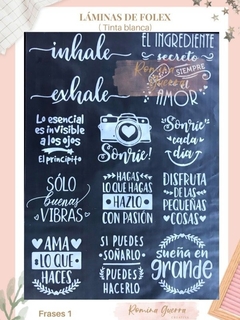 LÁMINAS DE FOLEX
( Tinta blanca)
inhale
exhale
EL INGREDIENTE
secreto
ES SIEMPRE
EL
AMOR
Lo esencial
es invisible
a los ojos
El principito
Sonríe!
Sonríe
cada
día
SÓLO
buenas
VIBRAS
HAGAS
LO QUE HAGAS
HAZLO
CON PASIÓN
DISFRUTA
DE LAS
PEQUEÑAS
COSAS
AMA
LO QUE
HACES
SI PUEDES
SOÑARLO
PUEDES
HACERLO
sueña en
grande
Frases 1
Romina Guerra